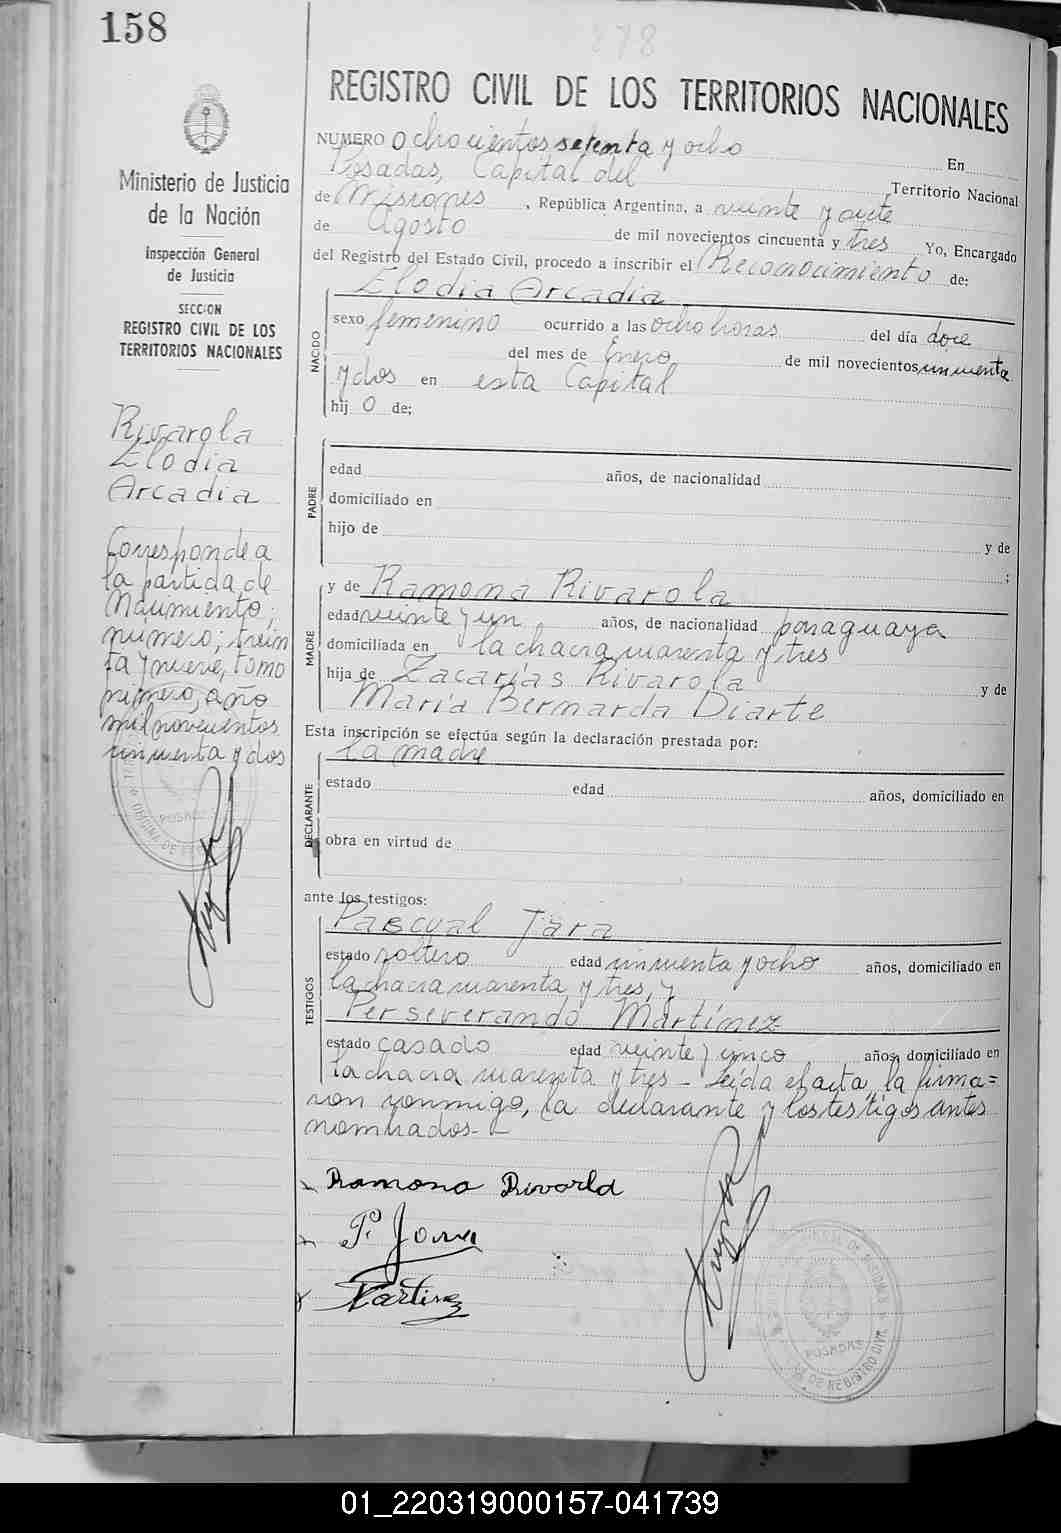 158
878
REGISTRO CIVIL DE LOS TERRITORIOS NACIONALES
Ministerio de Justicia
de la Nación
Inspección General
de Justicia
SECCION
REGISTRO CIVIL DE LOS
TERRITORIOS NACIONALES
Rivarola
Elodia
Arcadia
Corresponde a
la partida de
Nacimiento;
número; trein
ta y nueve, tomo
primero, año
mil novecientos
cincuenta y dos
POSADAS
NUMERO Ochocientos setenta y ocho En
Posadas, Capital del Territorio Nacional
de Misiones, República Argentina, a veinte y siete
de Agosto de mil novecientos cincuenta y tres Yo, Encargado
del Registro del Estado Civil, procedo a inscribir el Reconocimiento de:
NACIDO
Elodia Arcadia
sexo femenino ocurrido a las ocho horas del día doce
del mes de Enero de mil novecientos cincuenta
y dos en esta Capital
hij o de;
PADRE
edad años, de nacionalidad
domiciliado en
hijo de
y de
;
MADRE
y de Ramona Rivarola
edad veinte y un años, de nacionalidad paraguaya
domiciliada en la chacra cuarenta y tres
hija de Zacarías Rivarola y de
María Bernarda Diarte
Esta inscripción se efectúa según la declaración prestada por:
DECLARANTE
la madre
estado edad años, domiciliado en
obra en virtud de
ante los testigos:
TESTIGOS
Pascual Jara
estado soltero edad cincuenta y ocho años, domiciliado en
la chacra cuarenta y tres, y
Perseverando Martínez
estado casado edad veinte y cinco años, domiciliado en
la chacra cuarenta y tres - Leída el acta, la firma=
ron conmigo, la declarante y los testigos antes
nombrados.-
Ramona Rivarola
P. Jara
Martinez
POSADAS
DE REGISTRO CIVIL
01_220319000157-041739